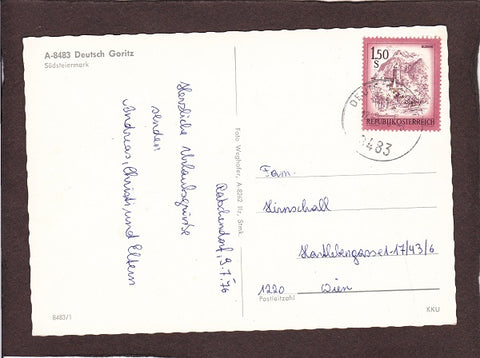 A-8483 Deutsch Goritz
Südsteiermark
Herzliche Urlaubsgrüße
senden
Andreas, Christl und Eltern
Ratschendorf, 9.7.76
Foto Weghofer, A-8262 Ilz, Stmk.
1.50
S
REPUBLIK ÖSTERREICH
8483
Fam.
Hirnschall
Hartlebengasse 1-17/43/6
1220 Wien
Postleitzahl
8483/1
KKU